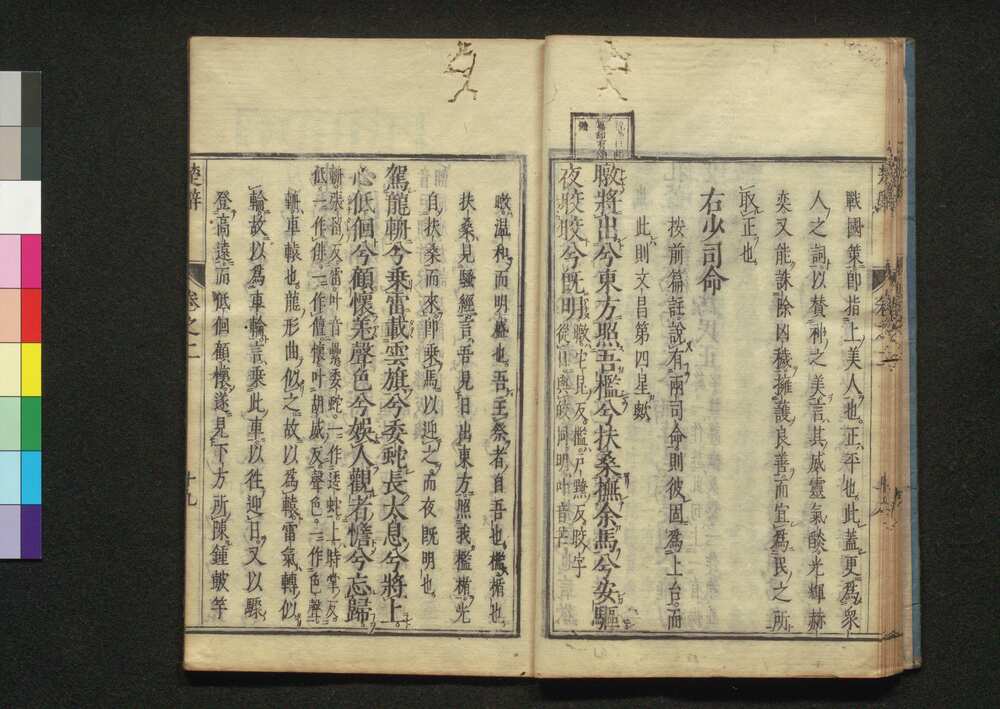 戰國策即指上美人也正平也此蓋更爲衆
人之詞以贊神之美言其威靈氣燄光輝赫
奕又能誅除凶穢擁護良善而宜爲民之所
取正也
右少司命
按前篇註說有兩司命則彼固爲上台而
此則文昌第四星歟
暾將出兮東方照吾檻兮扶桑撫余馬兮安驅
夜晈晈兮既明暾它昆反檻戶黤反晈字
從日與皎同明叶音芒
暾温和而明盛也吾主祭者自吾也檻楯也
扶桑見騷經言吾見日出東方照我檻楯光
自扶桑而來即乗馬以迎之而夜既明也
駕龍輈兮乗雷載雲旗兮委蛇長太息兮將上
心低佪兮顧懷羌聲色兮娛人觀者憺兮忘歸
輈張留反雷叶音纍委蛇一作逶蛇上時掌反
低一作俳一作儃懷叶胡威反聲色一作色聲
輈車轅也龍形曲似之故以爲轅雷氣轉似
輪故以爲車輪言乗此車以往迎日又以驟
登高遠而低佪顧懷遂見下方所陳鍾鼓竽
楚辭
卷之二
十九